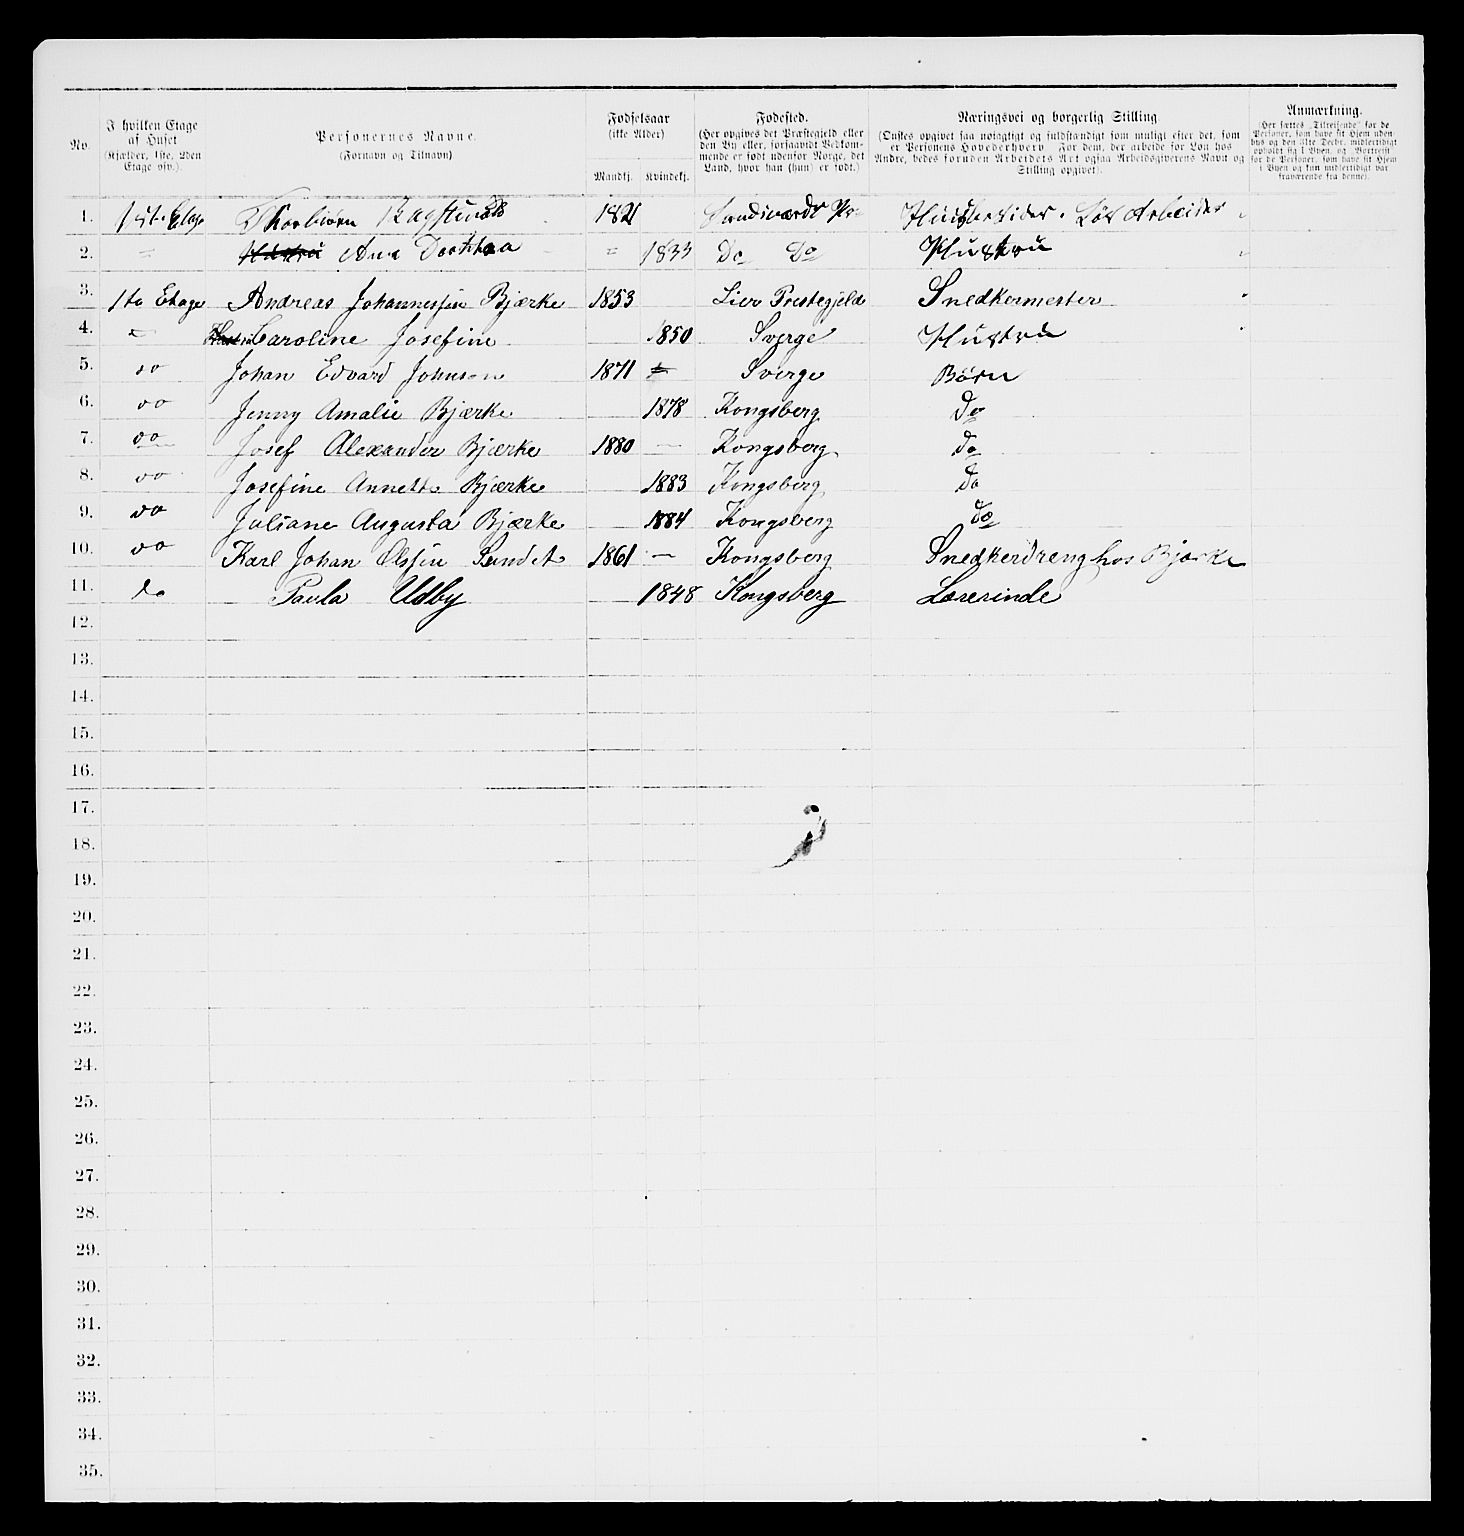 No.
I hvilken Etage af Huset (Kjælder, 1ste, 2den Etage osv.).
Personernes Navne. (Fornavn og Tilnavn)
Fødselsaar (ikke Alder) Mandkj. Kvindekj.
Fødested. (Her opgives det Præstegjeld eller den By eller, forsaavidt Vedkommende er født udenfor Norge, det Land, hvor han (hun) er født.)
Næringsvei og borgerlig Stilling (Ønskes opgivet saa nøiagtigt og fuldstændigt som muligt efter det, som er Personens Hovederhverv. For dem, der arbeide for Løn hos Andre, bedes foruden Arbeidets Art ogsaa Arbeidsgiverens Navn og Stilling opgivet).
Anmærkning. (Her sættes „Tilreisende" for de Personer, som have sit Hjem udenbys og den 31te Decbr. midlertidigt opholdt sig i Byen, og „Bortreist" for de Personer, som have sit Hjem i Byen og kun midlertidigt var fraværende fra denne).
1. 1ste Etage Thorbiørn 1821 Sandsværds Pr. Huusbesider. Løs Arbeider
2. " Hustru Ana Dorthea " 1833 Do Do Hustru
3. 1te Etage Andreas Johannessen Bjærke 1853 Lier Prestegjeld Snedkermester
4. " Hustru Caroline Josefine 1850 Sverge Hustru
5. do Johan Edvard Johnsen 1871 Sverge Børn
6. do Jenny Amalie Bjærke 1878 Kongsberg do
7. do Josef Alexander Bjærke 1880 — Kongsberg do
8. do Josefine Annette Bjærke 1883 Kongsberg do
9. do Juliane Augusta Bjærke 1884 Kongsberg do
10. do Karl Johan Olssen Sundet 1861 — Kongsberg Snedkerdreng hos Bjærke
11. do Paula Udby 1848 Kongsberg Lærerinde
12.
13.
14.
15.
16.
17.
18.
19.
20.
21.
22.
23.
24.
25.
26.
27.
28.
29.
30.
31.
32.
33.
34.
35.